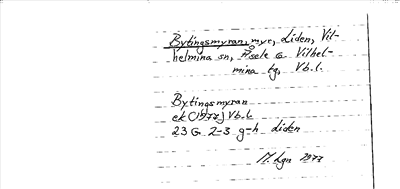 Bytingsmyran, myr, Liden, Vil-
helmina sn, Åsele o. Vilhel-
mina tg, Vb.l.
Bytingsmyran
ek (1977) Vb.l.
23 G 2-3 g-h Liden
M. Lgn 1977